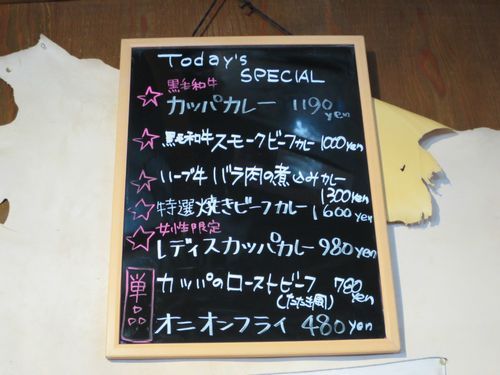 Today's
SPECIAL
黒毛和牛
カッパカレー 1190yen
黒毛和牛スモークビーフカレー 1000yen
ハーブ牛バラ肉の煮込みカレー
1300yen
特選焼きビーフカレー 1600yen
女性限定
レディスカッパカレー 980yen
単品
カッパのローストビーフ 780yen
(たたき風)
オニオンフライ 480yen